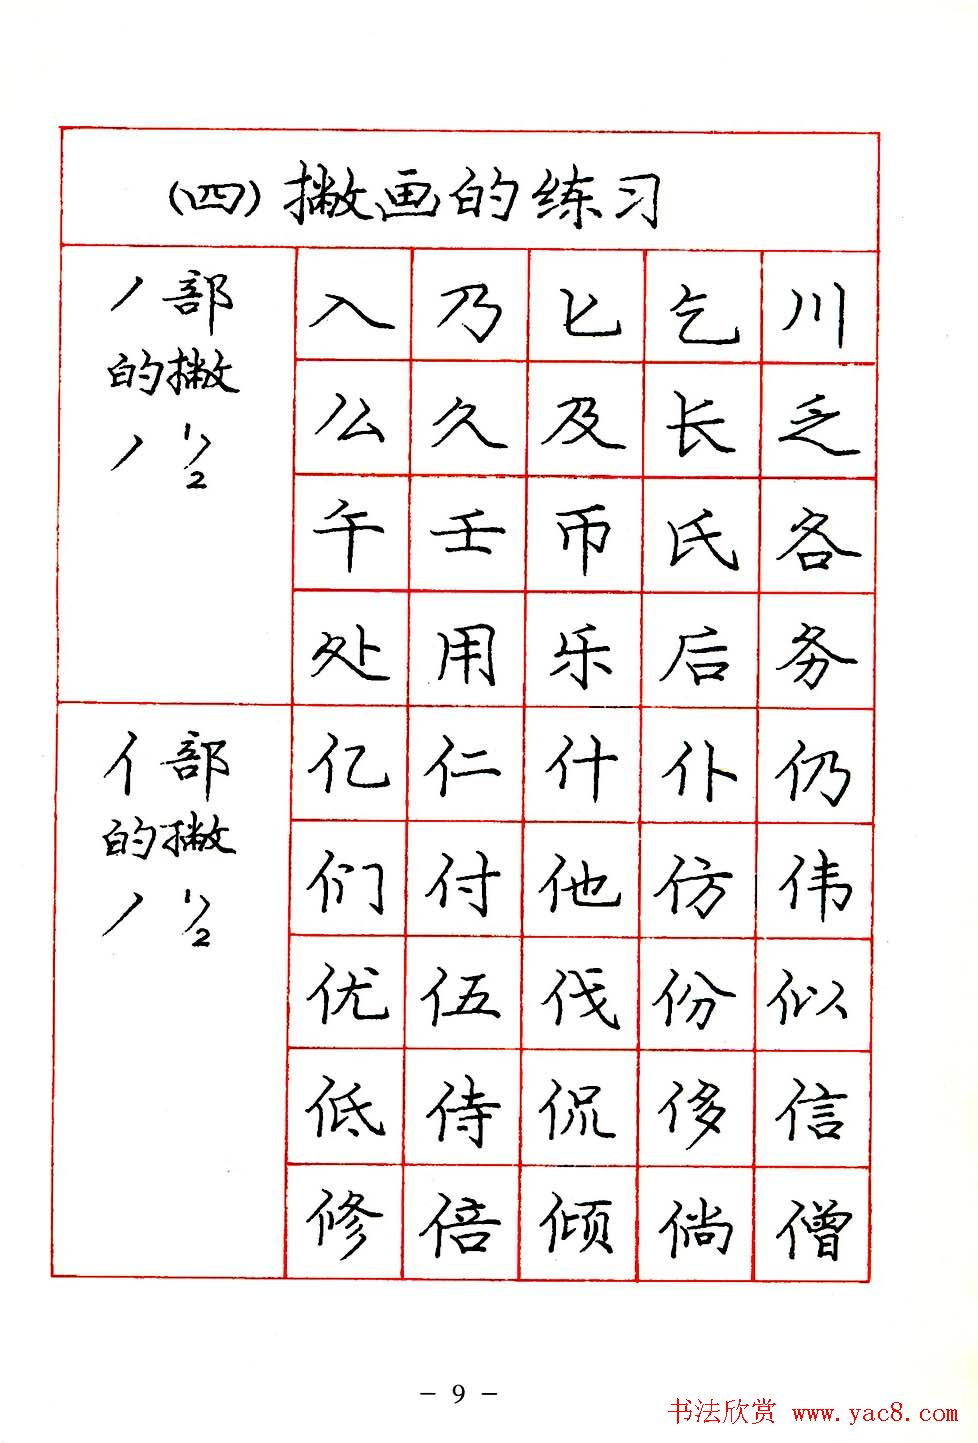 (四)撇画的练习
丿部
的撇
丿 1 2
入 乃 匕 乞 川
么 久 及 长 乏
午 壬 币 氏 各
处 用 乐 后 务
亻部
的撇
丿 1 2
亿 仁 什 仆 仍
们 付 他 仿 伟
优 伍 伐 份 似
低 侍 侃 侈 信
修 倍 倾 倘 僧
- 9 -
书法欣赏 www.yac8.com